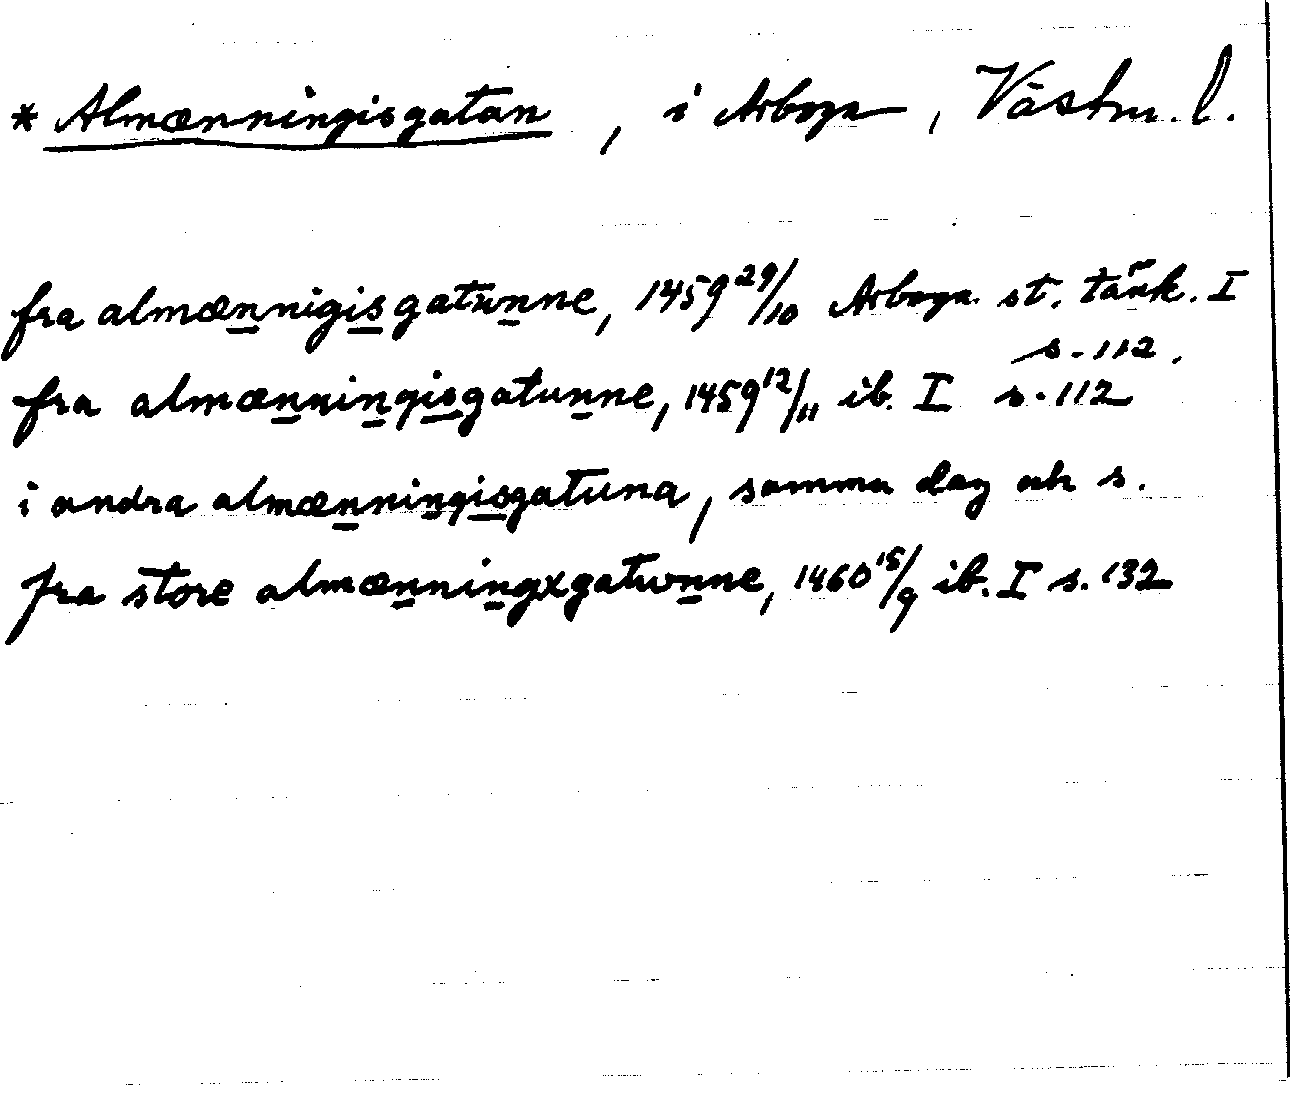 * Almænningisgatan, i Arboga, Västm. l.
fra almænnigisgatunne, 1459 29/10 Arboga st. tänk. I
s. 112.
fra almænningisgatunne, 1459 12/11 ib. I s. 112
i andra almænningisgatuna, samma dag och s.
fra store almænningxgatwnne, 1460 15/9 ib. I s. 132